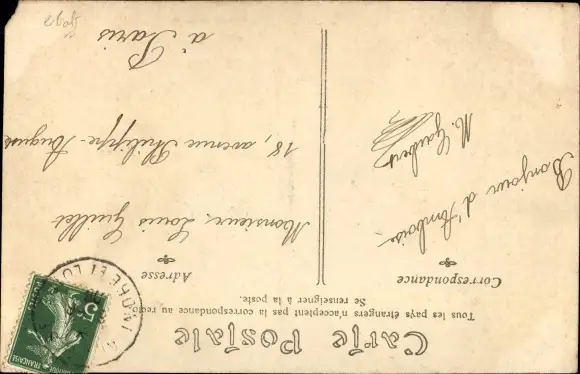 Carte Postale
Tous les pays étrangers n'acceptent pas la correspondance au recto
Se renseigner à la poste.
Correspondance
Bonjour d'Amboise
M. Gaubert
Adresse
Monsieur Louis Guillet
18, avenue Philippe-Auguste
à Paris
INDRE ET LOI
5
FRANÇAISE